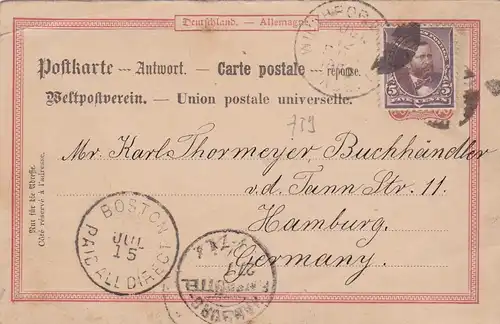 Deutschland. — Allemagne.
Postkarte — Antwort. — Carte postale — réponse.
Weltpostverein. — Union postale universelle.
759
Mr. Karl Thormeyer, Buchhändler
v.d. Tann Str. 11
Hamburg.
Germany.
Nur für die Adresse.
Côté réservé à l'adresse.
5 5
BOSTON
JUL
15
PAID ALL DIRECT
HAMBURG